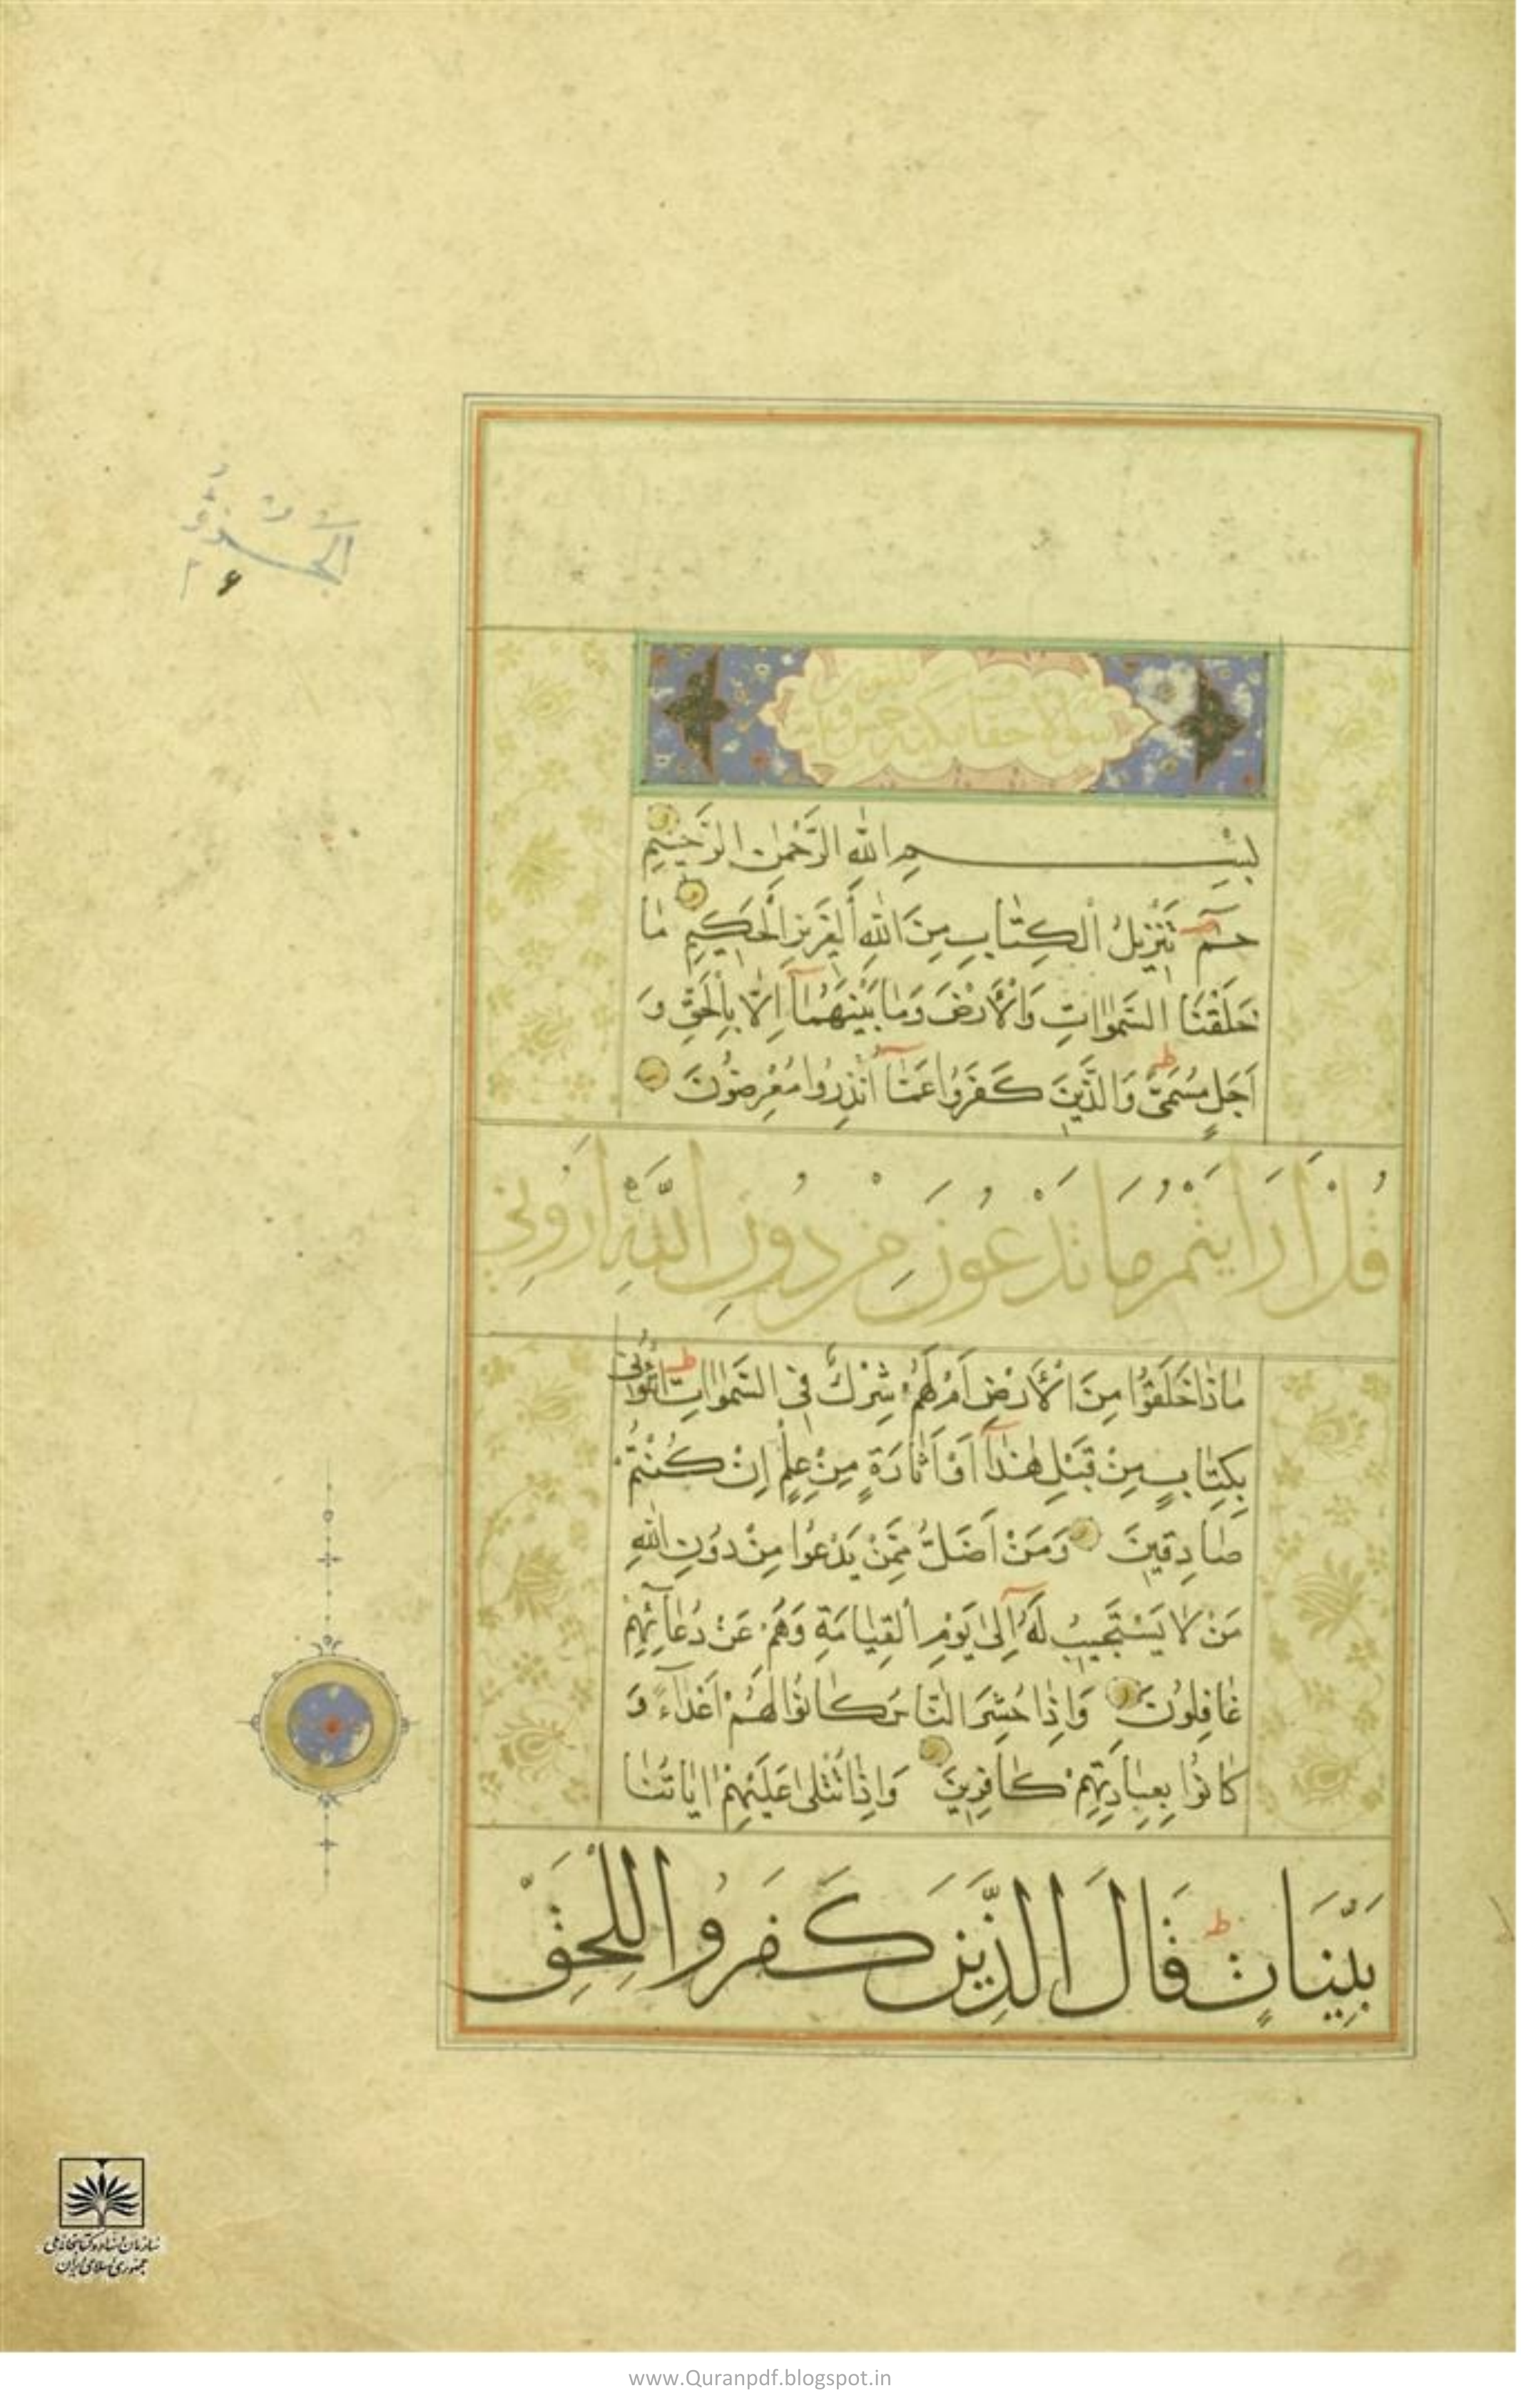 الجزو
۲۶
سورة الاحقاف مكية خمس وثلثون
بِسْمِ اللّٰهِ الرَّحْمٰنِ الرَّحِيمِ
حمٓ تَنْزِيلُ الْكِتَابِ مِنَ اللّٰهِ الْعَزِيزِ الْحَكِيمِ مَا
خَلَقْنَا السَّمٰوَاتِ وَالْأَرْضَ وَمَا بَيْنَهُمَآ اِلَّا بِالْحَقِّ وَ
اَجَلٍ مُسَمًّى وَالَّذِينَ كَفَرُوا عَمَّآ اُنْذِرُوا مُعْرِضُونَ
قُلْ اَرَاَيْتُمْ مَا تَدْعُونَ مِنْ دُونِ اللّٰهِ اَرُونِي
مَاذَا خَلَقُوا مِنَ الْأَرْضِ اَمْ لَهُمْ شِرْكٌ فِي السَّمٰوَاتِ ائْتُونِي
بِكِتَابٍ مِنْ قَبْلِ هٰذَآ اَوْ اَثَارَةٍ مِنْ عِلْمٍ اِنْ كُنْتُمْ
صَادِقِينَ وَمَنْ اَضَلُّ مِمَّنْ يَدْعُوا مِنْ دُونِ اللّٰهِ
مَنْ لَا يَسْتَجِيبُ لَهُ اِلٰى يَوْمِ الْقِيَامَةِ وَهُمْ عَنْ دُعَآئِهِمْ
غَافِلُونَ وَاِذَا حُشِرَ النَّاسُ كَانُوا لَهُمْ اَعْدَآءً وَ
كَانُوا بِعِبَادَتِهِمْ كَافِرِينَ وَاِذَا تُتْلٰى عَلَيْهِمْ اٰيَاتُنَا
بَيِّنَاتٍ قَالَ الَّذِينَ كَفَرُوا لِلْحَقِّ
سازمان اسناد و کتابخانه ملی
جمهوری اسلامی ایران
www.Quranpdf.blogspot.in